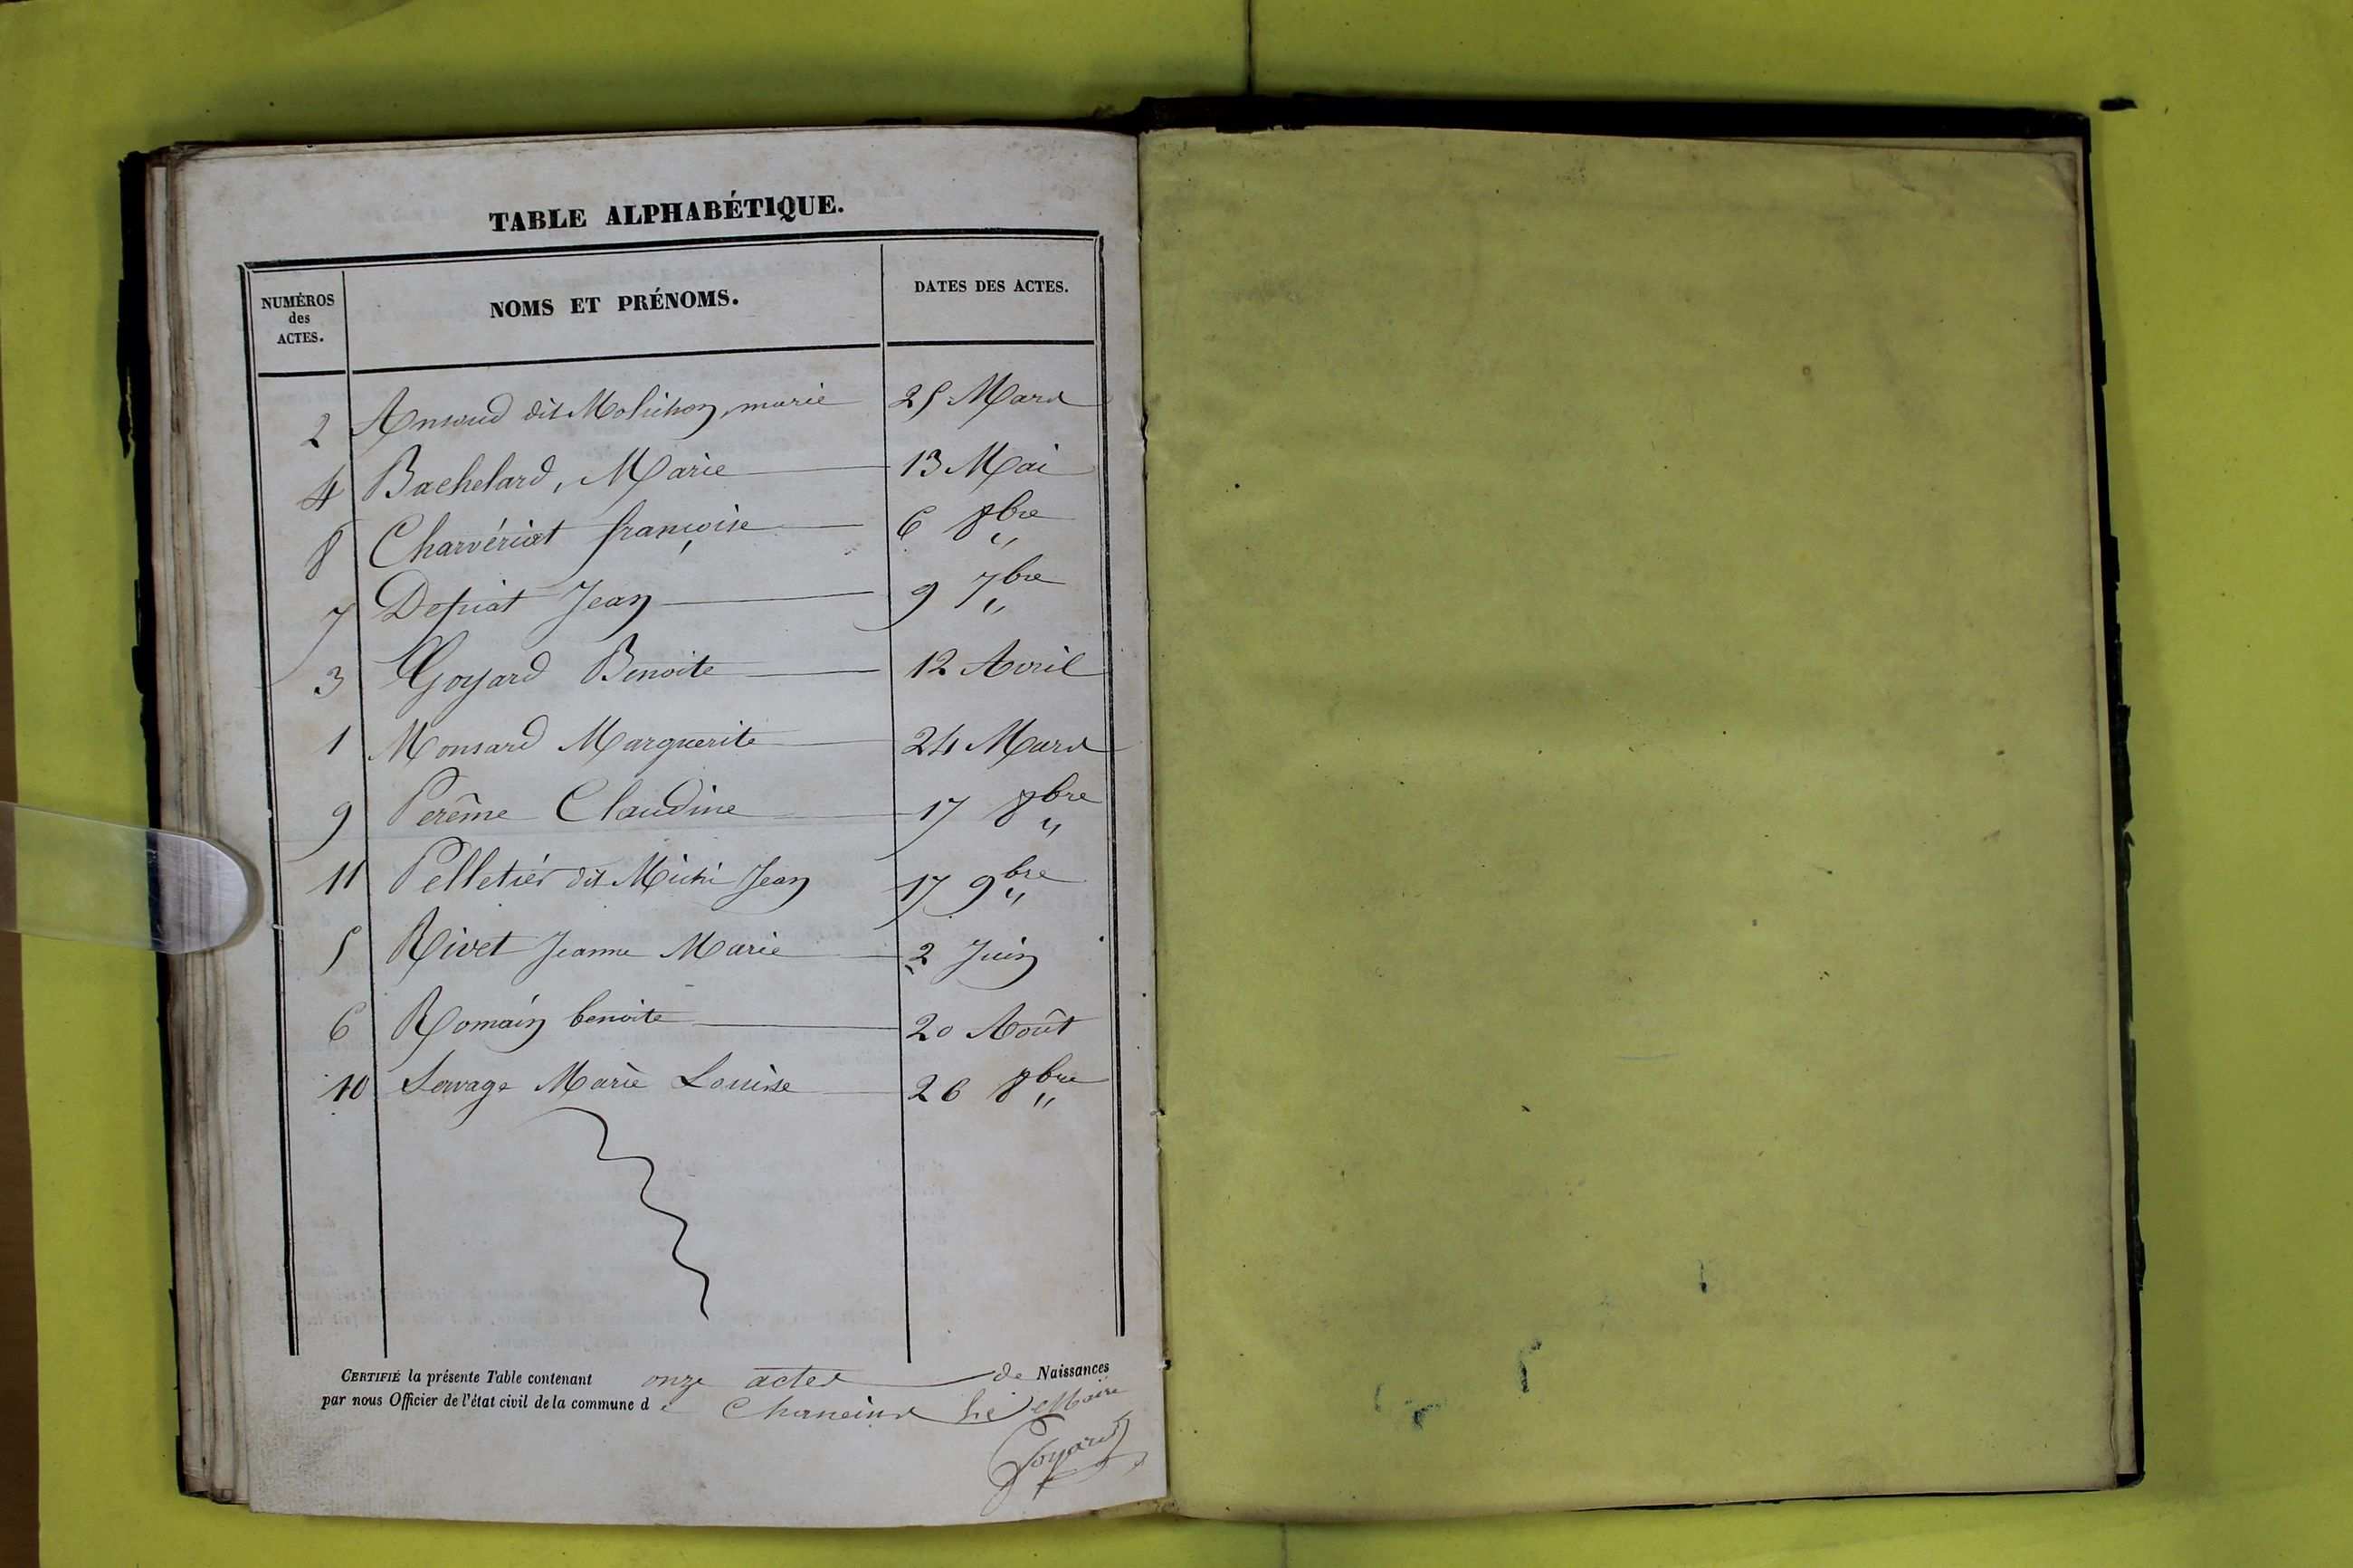 TABLE ALPHABÉTIQUE.
NUMÉROS des ACTES. NOMS ET PRÉNOMS. DATES DES ACTES.
2 dit marie 25 Mars
4 Bachelard, Marie 13 Mai
8 Charvériat françoise 6 8bre "
7 Depiat Jean 9 7bre "
3 Goyard Benoite 12 Avril
1 Monsard Marguerite 24 Mars
9 Perême Claudine 17 8bre "
11 Pelletier dit Jean 17 9bre "
5 Rivet Jeanne Marie 2 Juin
6 Romain benoite 20 Août
10 Marie Louise 26 8bre "
CERTIFIÉ la présente Table contenant onze actes de Naissances
par nous Officier de l'état civil de la commune de Maire
Goyard